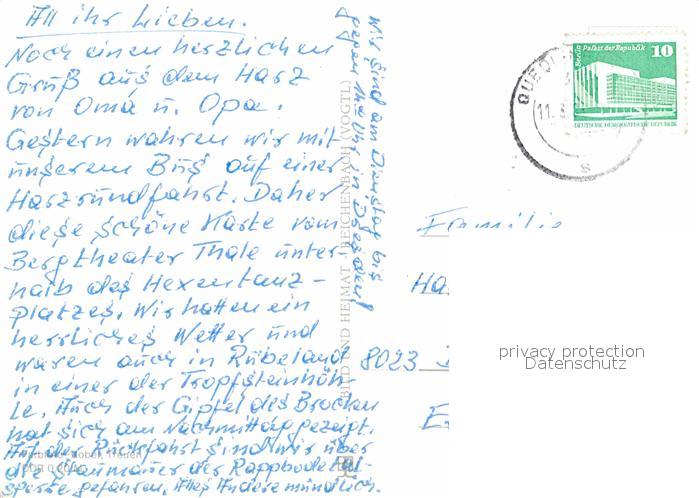 All ihr Lieben.
Noch einen herzlichen
Gruß aus dem Harz
von Oma u. Opa.
Gestern wahren wir mit
unserem Bus auf einer
Harzrundfahrt. Daher
diese schöne Karte vom
Bergtheater Thale unter-
halb des Hexentanz-
platzes. Wir hatten ein
herrliches Wetter und
waren auch in Rübeland
in einer der Tropfsteinhöh-
le. Auch der Gipfel des Brocken
hat sich am Nachmittag gezeigt.
Auf der Rückfahrt sind wir über
die Staumauer der Rappbodetal-
sperre gefahren. Alles Andere mündlich.
Wir sind am Dienstag bis
gegen 14 Uhr in
BILD UND HEIMAT REICHENBACH (VOGTL)
Berlin Palast der Republik
10
DEUTSCHE DEMOKRATISCHE REPUBLIK
11.
s
Familie
Ha
8023
privacy protection
Datenschutz